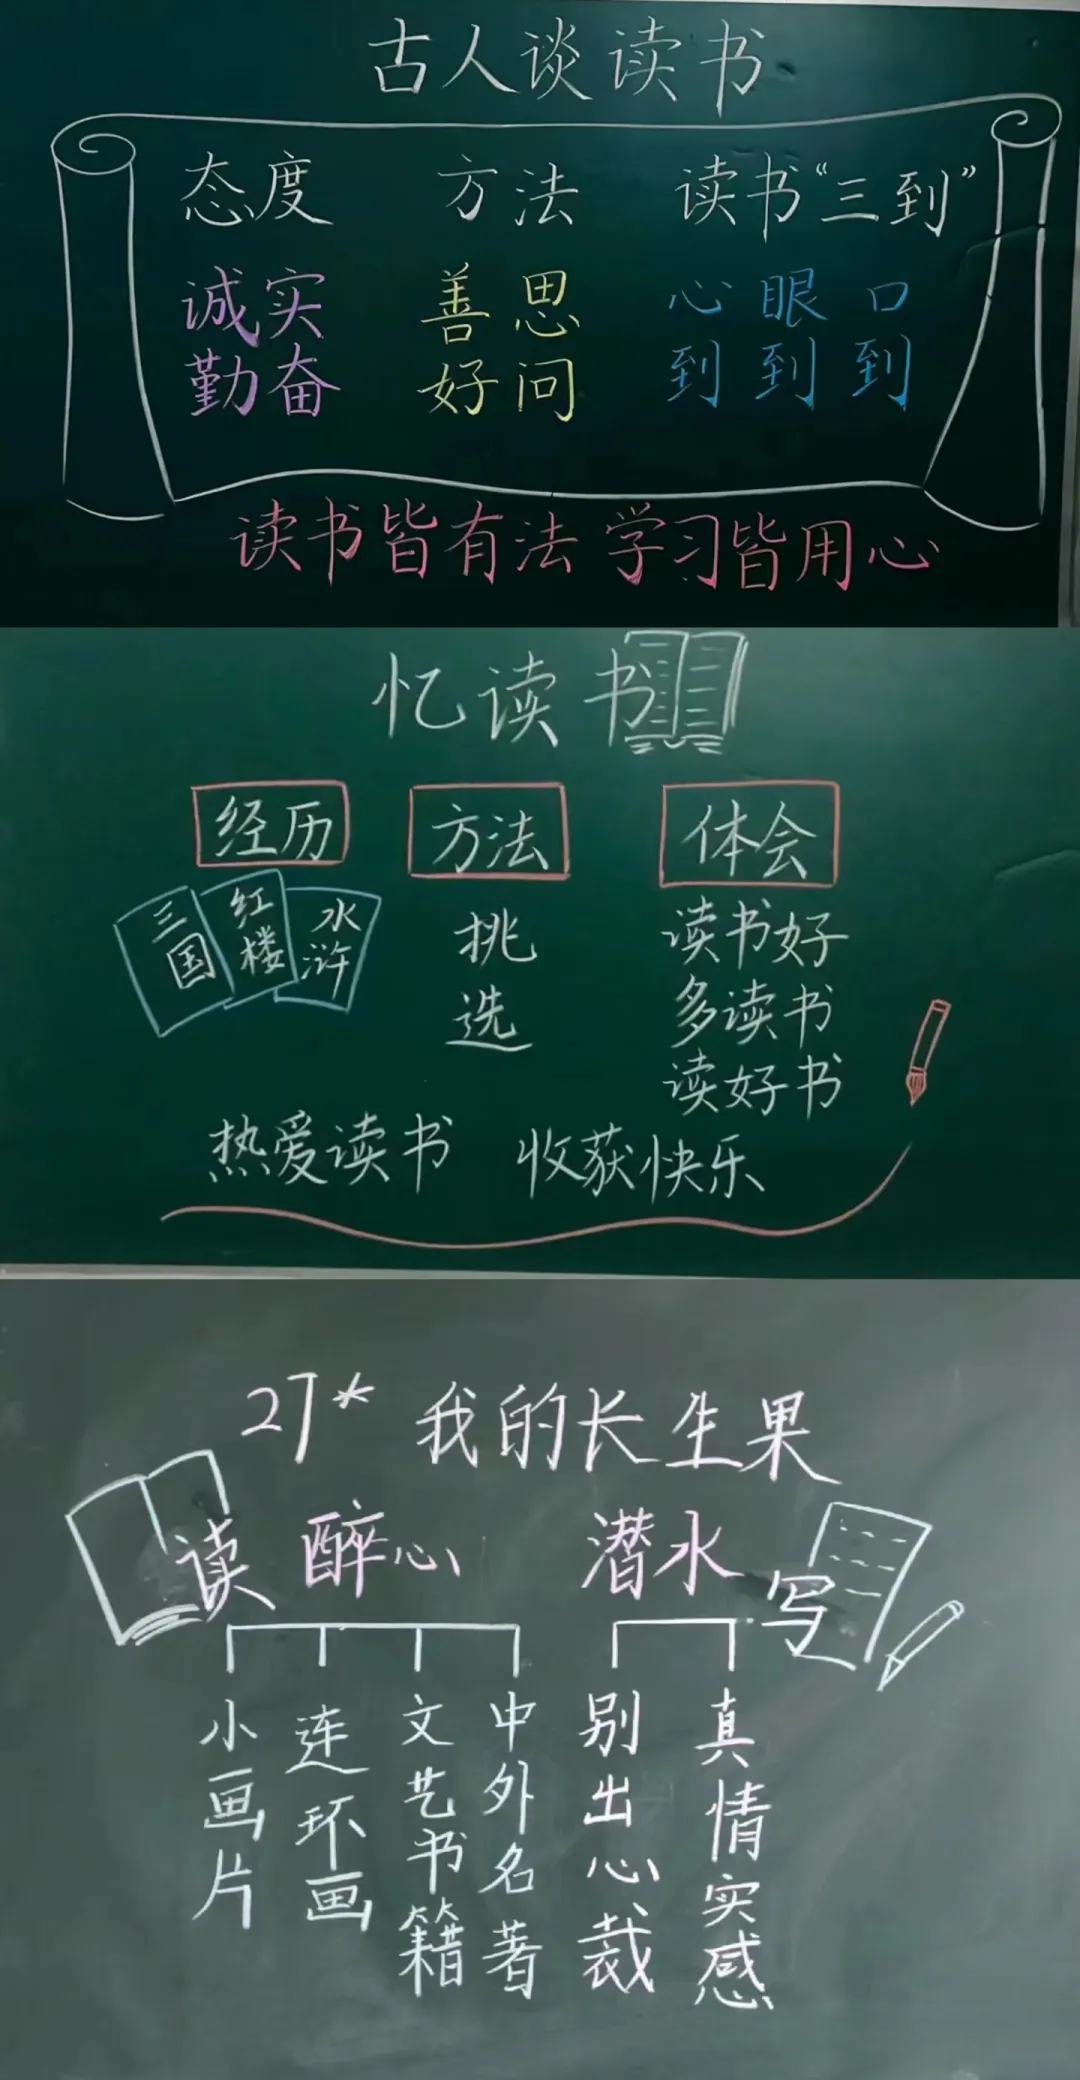 古人谈读书
态度 方法 读书“三到”
诚实 善思 心 眼 口
勤奋 好问 到 到 到
读书皆有法 学习皆用心
忆读书
经历 方法 体会
三国 红楼 水浒
挑选
读书好
多读书
读好书
热爱读书 收获快乐
27* 我的长生果
读 醉心 潜水 写
小画片
连环画
文艺书籍
中外名著
别出心裁
真情实感